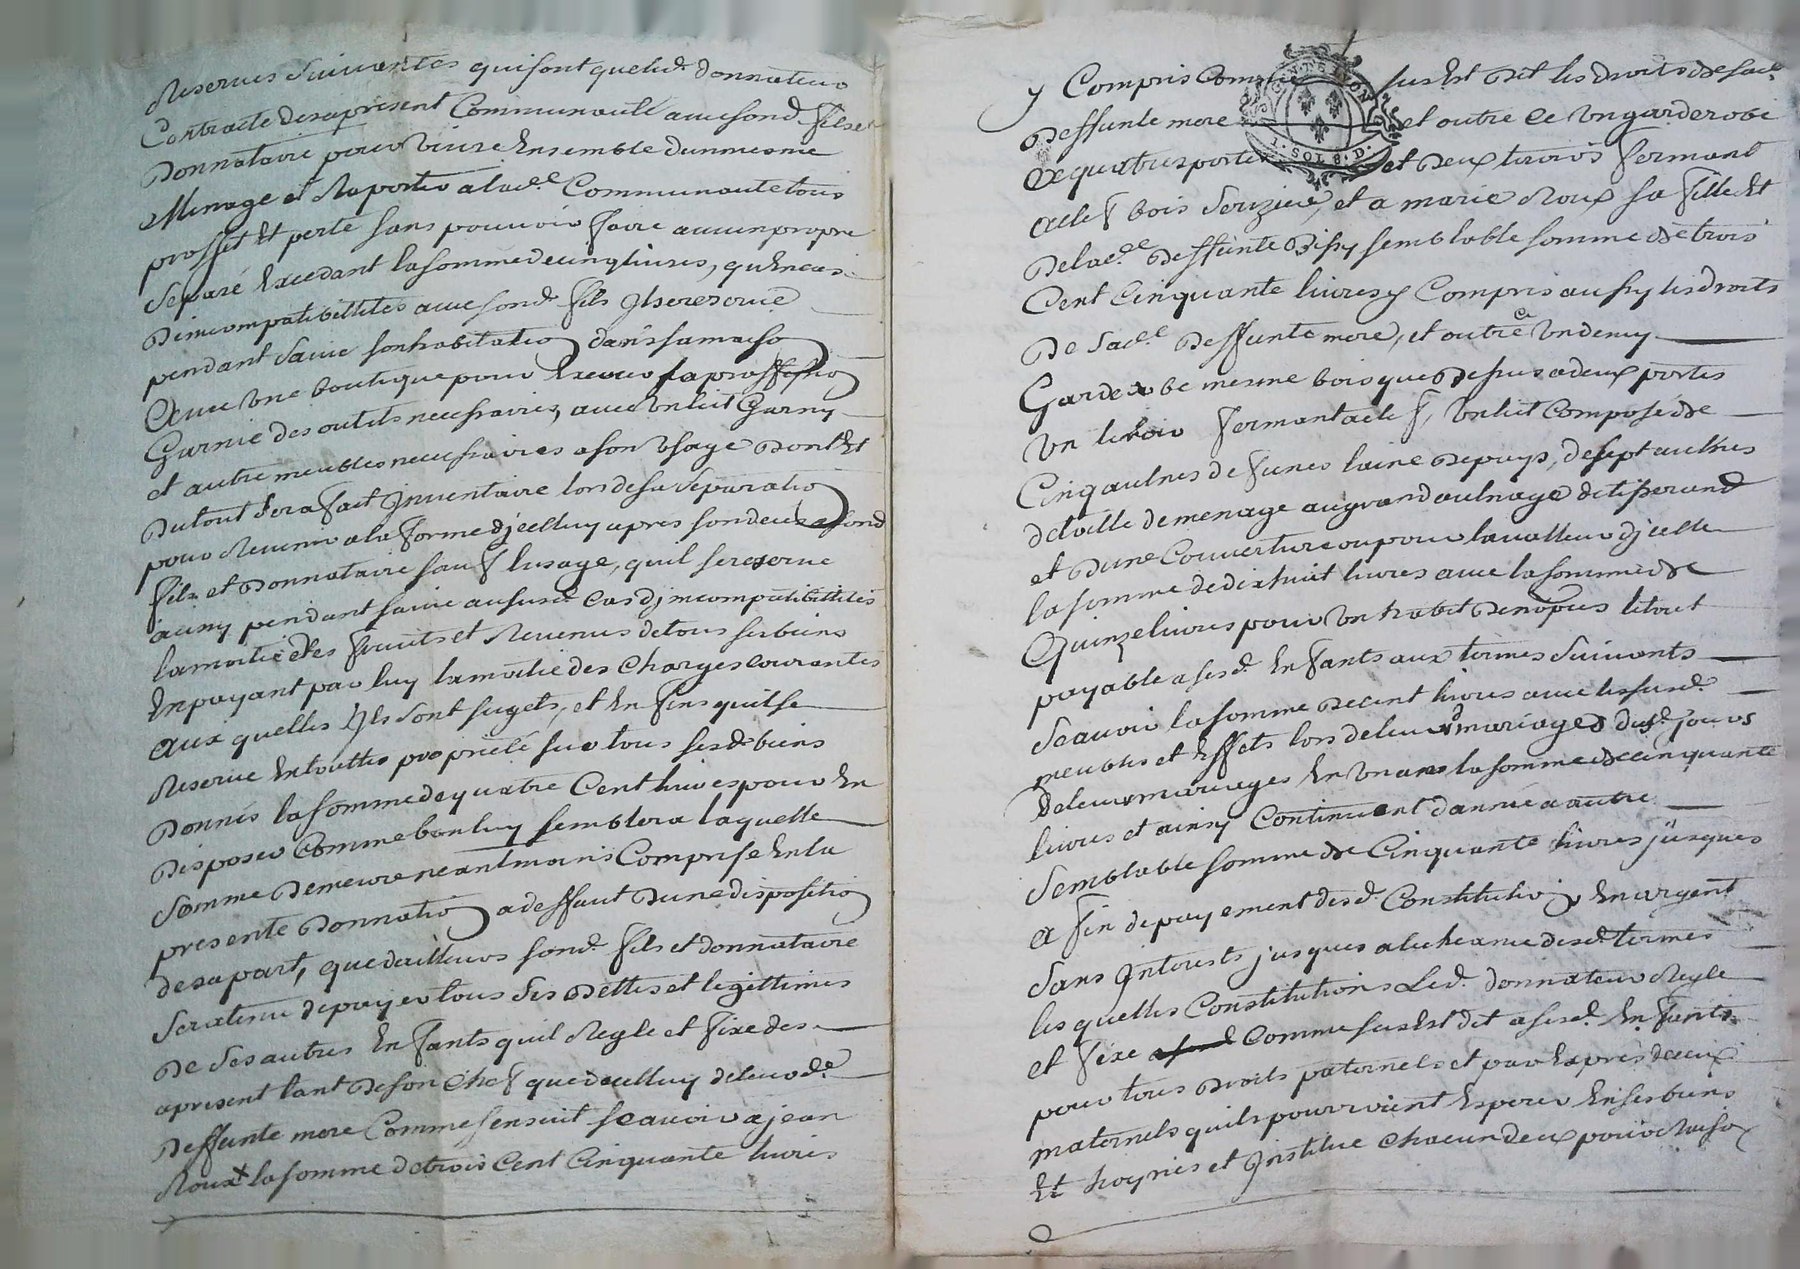 Reserves Suivantes qui sont que led. donnateur
Contracte des apresent Communauté avec sond. fils et
Donnataire pour vivre Ensemble dun mesme
Menage et Raporter a lad.e Communauté tous
proffit Et perte sans pouvoir faire aucun propre
Separé Excedant la somme de cinq livres, qu'En cas
Dincompatibillités avec sond. fils Il se reserve
pendant Sa vie son habitation dans sa maison
Avec Une boutique pour Exercer sa proffession
Garnie des outils necessaires, avec Un lit Garny
et autre meubles necessaires a son Usage Dont Et
Du tout sera fait Inventaire lors de la Separation
pour Revenir a la forme d'jcelluy apres son deces a sond
fils et Donnataire sauf lusage, quil se reserve
aussy pendant sa vie au susd. Cas d'jncompatibillités
la moitié des fruits et Revenus de tous ses biens
En payant par luy la moitié des Charges courantes
aux quelles Ils sont sugets, et En fins quil se
Reserve En touttes proprieté sur tous sesd. biens
Donnés la somme de quatre Cent livres pour En
Disposer Comme bon luy semblera laquelle
Somme Demeure neantmoins Comprise En la
presente Donnation a deffaut Dune disposition
de sa part, que dailleurs sond. fils et donnataire
sera tenu de payer tous Ses Dettes et legittimes
De Ses autres Enfants quil Regle et fixe des
apresent tant De son Chef que de celluy de leurd.e
Deffunte mere Comme sensuit scavoir a jean
Roux la somme de trois Cent Cinquante livres
y Compris Comme sus Est Dit les droits de sad.e
Deffunte mere et outre ce Un garderobe
a quatres portes et Deux tiroirs fermant
a clef bois Serizier, et a marie Roux sa fille Et
De lad.e Deffunte Dissy semblable somme de trois
Cent Cinquante livres y Compris aussy les droits
De Sad.e Deffunte mere, et outre ce Un demy
Garderobe mesme bois que Dessus a deux portes
Un tiroir fermant a clef, Un lit Composé de
Cinq aulnes de funes laine Du pays, de sept aulnes
de toille de menage au grand aulnage de tisserand
et Dune Couverture ou pour la valleur d'jcelle
la somme de dixhuit livres avec la somme de
Quinze livres pour Un habit De nopces le tout
payable a sesd. Enfants aux termes Suivants
Scavoir la somme De cent livres avec les susd.
meubles et Effets lors de leurs mariages dud. jours
De leurs mariages En Un an la somme de cinquante
livres et ainsy Continuent dannée a autre
Semblable somme de Cinquante livres jusques
A fin de payement desd. Constitution En argent
Sans Interests jusques a lecheance desd. termes
les quelles Constitutions Led. donnateur Regle
et fixe Comme sus Est dit a sesd. Enfants
pour tous Droits paternels et par Exprès de ceux
maternels quils pourroient Esperer En ses biens
Et hoyries et Institue Chacun deux pour Raison
1. SOL 8. D.